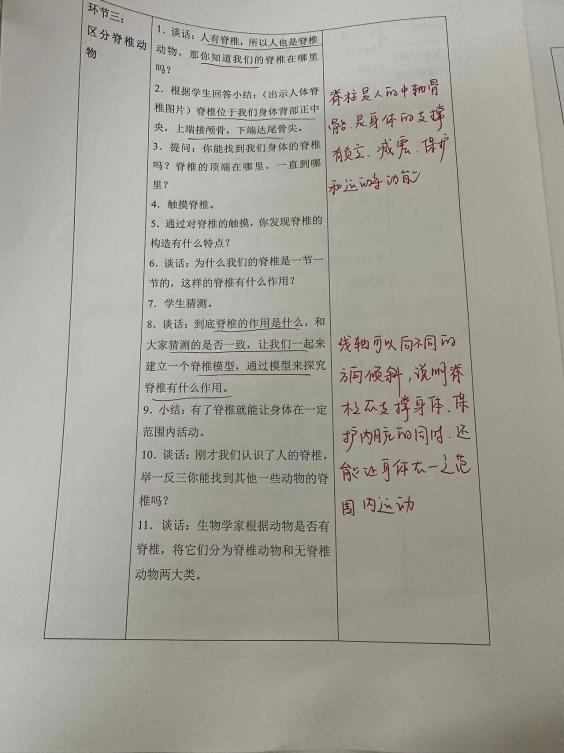 环节三：
区分脊椎动
物
1．谈话：人有脊椎，所以人也是脊椎
动物，那你知道我们的脊椎在哪里
吗？
2．根据学生回答小结：（出示人体脊
椎图片）脊椎位于我们身体背部正中
央，上端接颅骨，下端达尾骨尖。
3．提问：你能找到我们身体的脊椎
吗？脊椎的顶端在哪里，一直到哪
里？
4．触摸脊椎。
5．通过对脊椎的触摸，你发现脊椎的
构造有什么特点？
6．谈话：为什么我们的脊椎是一节一
节的，这样的脊椎有什么作用？
7．学生猜测。
8．谈话：到底脊椎的作用是什么，和
大家猜测的是否一致，让我们一起来
建立一个脊椎模型，通过模型来探究
脊椎有什么作用。
9．小结：有了脊椎就能让身体在一定
范围内活动。
10．谈话：刚才我们认识了人的脊椎，
举一反三你能找到其他一些动物的脊
椎吗？
11．谈话：生物学家根据动物是否有
脊椎，将它们分为脊椎动物和无脊椎
动物两大类。
脊柱是人的中轴骨
骼，是身体的支撑
有负重、减震、保护
和运动等功能
线轴可以向不同的
方向倾斜，说明脊
柱在支撑身体、保
护内脏的同时，还
能让身体在一定范
围内运动